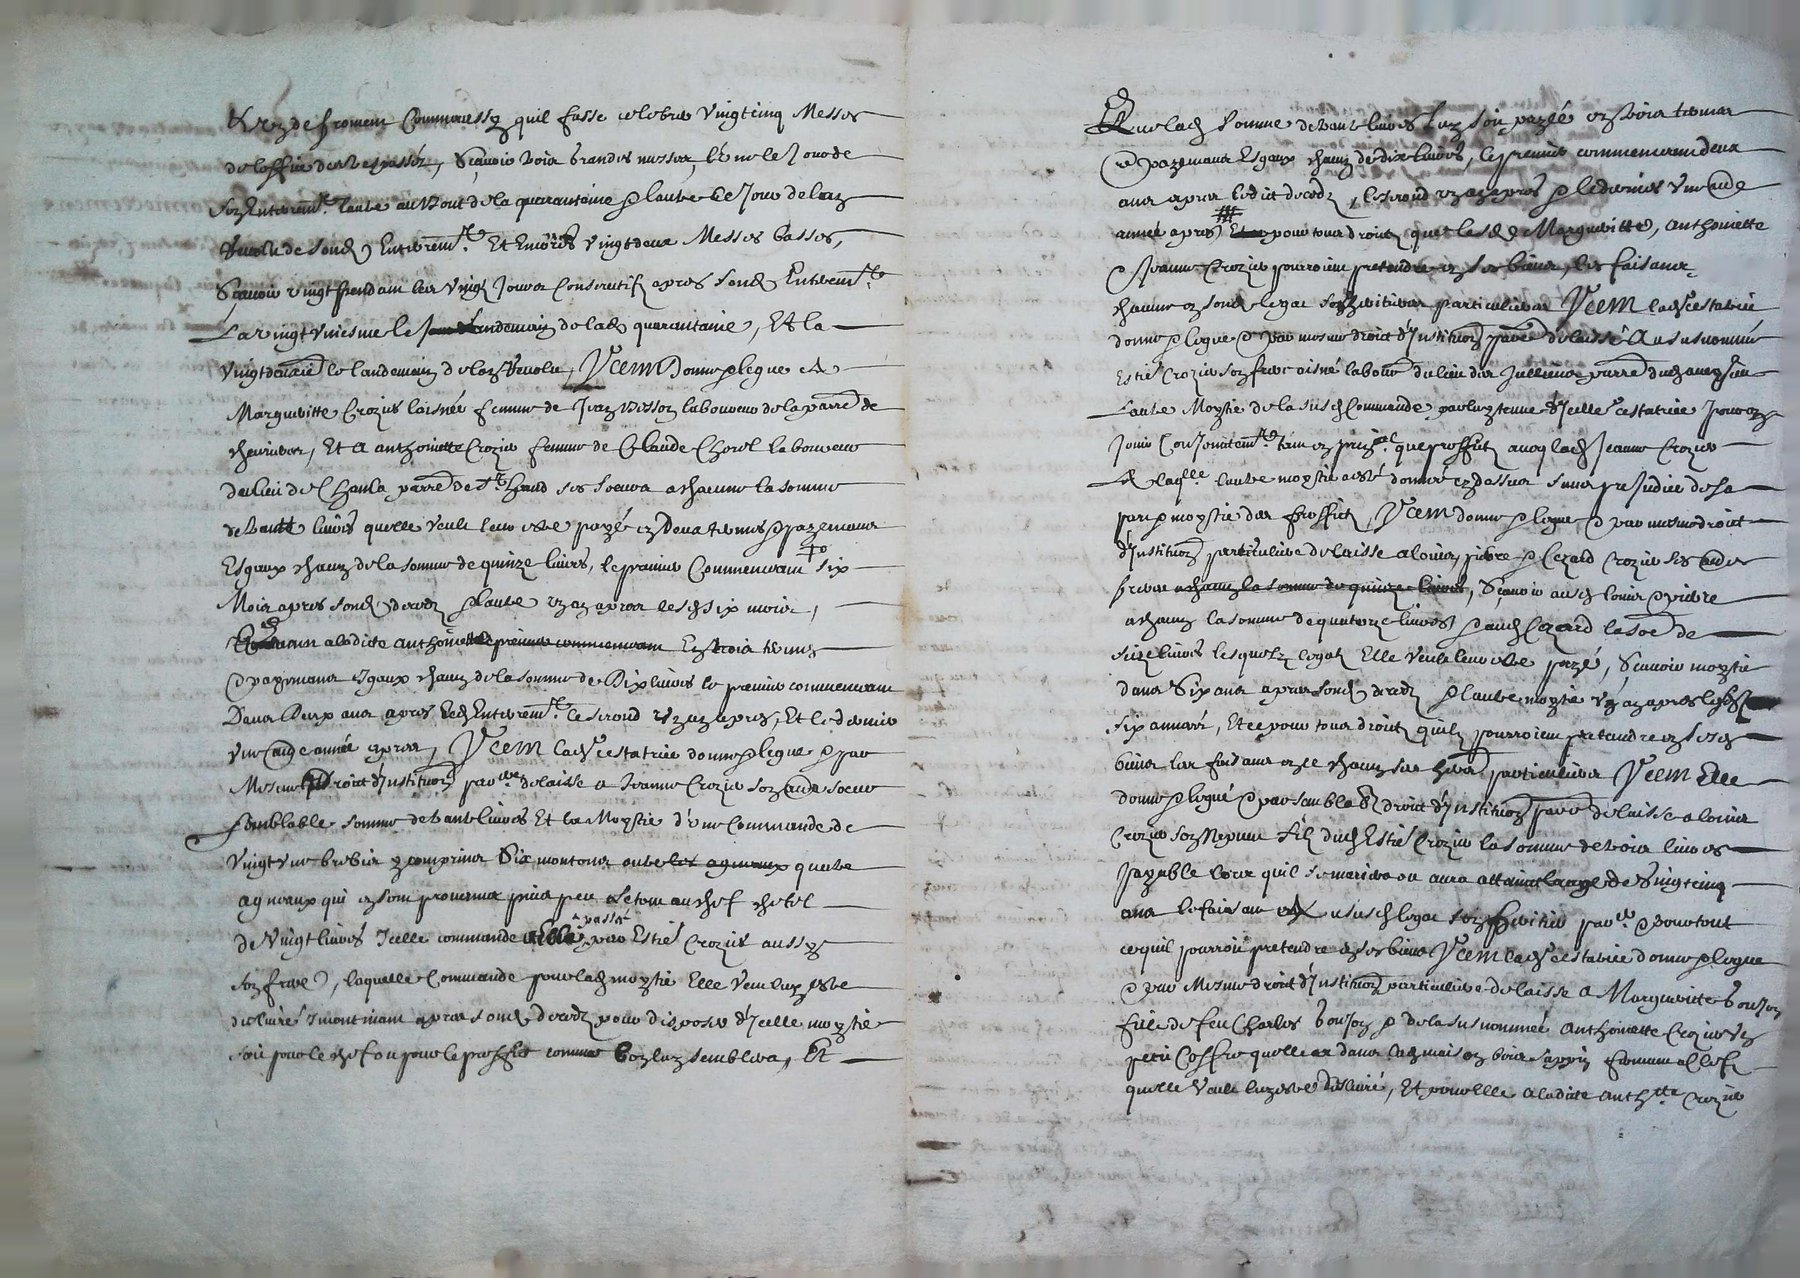 de froment Comm aussy quil fasse celebrer vingtcinq Messes
de loffice des trepassés, Scavoir trois grandes messes, lune le Jour de
son Enterremt. lautre au bout de la quarantaine & lautre le Jour de lan
revolu de sond Enterremt. Et Encores vingtdeux Messes basses,
Scavoir vingt pendant les vingt Jours Consecutifs apres sond Enterremt.
La vingt uniesme le landemain de lad quarantaine, Et la
vingtdeuxie le landemain de lan revolu, Item donne & legue A
Margueritte Crozier laisnée femme de Jean laboureur de la parre de
Et A anthoinette Crozier femme de Claude Chorel laboureur
du lieu de parre de St ses soeurs a chacune la somme
de trante livres quelle veult leur estre payé en deux termes & payemans
Esgaux chacun de la somme de quinze livres, le premier Commencant six
Mois apres sond deceds & lautre un an apres lesd six mois,
a ladite anthoinette le premier commencant En trois termes
& payemans Egaux chacun de la somme de Dix livres le premier commencant
Dans Deux ans apres led Enterremt. le second un an apres, Et le dernier
une aude année apres, Item lad testatrice donne & legue & par
Mesme Droict d'Institution parre delaisse a Jeanne Crozier son aude soeur
semblable somme de trante livres Et la Moytie d'une Commande de
vingt une brebis y compris Six moutons outre les agneaux quatre
agneaux qui en sont provenus au chef chetel
de vingt livres Icelle commande passé par Estie Crozier aussy
son frere, laquelle Commande pour lad moytié Elle veult luy estre
delivré Incontinant apres sond deceds pour disposer d'Icelle moytié
soit pour le chef ou pour le proffict comme bon luy semblera, Et
Que lad somme de trante livres luy soit payée en trois termes
& payemans Esgaux chacun de dix livres, le premier commencant deux
ans apres ledict deceds, le second un an apres & le dernier une aude
année apres Et ce pour tous droicts que lesd Margueritte, anthoinette
& Jeanne Crozier pourroient pretendre en ses biens, les faisant
chacune en sond legat ses heritieres particulieres Item lad testatrice
donne & legue & par mesme droict d'Institution parre delaisse A susnommé
Estie Crozier son frere aisné laboureur du lieu des parre dud
Lautre Moytié de la susd Commande par luy tenue d'Icelle testatrice pour en
Jouir Conjointemt. tant en prinal que proffict avecq lad Jeanne Crozier
A laqlle lautre moytié a esté donnée cy dessus sans prejudice de sa
part & moytié des proffict, Item donne & legue & par mesme droict
d'Institution particuliere delaisse a louis, pierre & Cezard Crozier ses audes
freres a chacun la somme de quinze livres, Scavoir ausd louis & pierre
a chacun la somme de quatorze livres & aud Cezard la some de
seize livres lesquels legats Elle veult leur estre payé, Scavoir moytié
dans Six ans apres sond deceds & lautre moytié un an apres lesd
six années, Et ce pour tous droicts quils pourroient pretendre en sesd
biens les faisans en ce chacun ses hers particuliers Item Elle
donne & legue & par semblable droict d'Institution parre delaisse a louis
Crozier son Nepveu fils dud Estie Crozier la somme de trois livres
payable lors quil se mariera ou aura attaint laage de vingtcinq
ans le faisant en susd legat son heritier parre & pour tout
ce quil pourroit pretendre en ses biens Item lad testatrice donne & legue
& par Mesme droict d'Institution particuliere delaisse a Margueritte bonjon
fille de feu Charles bonjon & de la susnommée anthoinette Crozier Un
petit Coffre quelle a dans lad maison bois sappin fermant a clef
quelle veult luy estre deslivré, Et pour elle a ladite anthtte Crozier